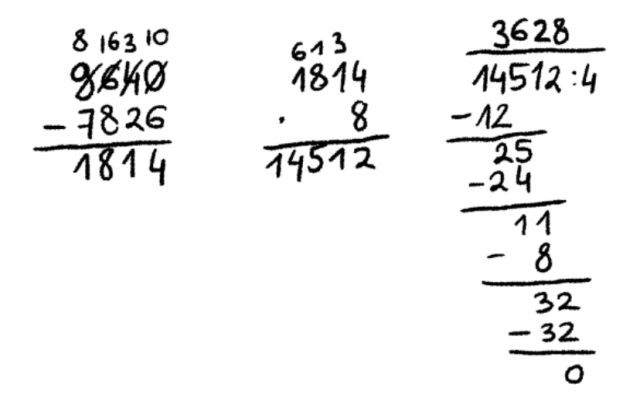 8 16 3 10
9640
- 7826
1814
6 1 3
1814
· 8
14512
3628
14512 : 4
- 12
25
- 24
11
- 8
32
- 32
0